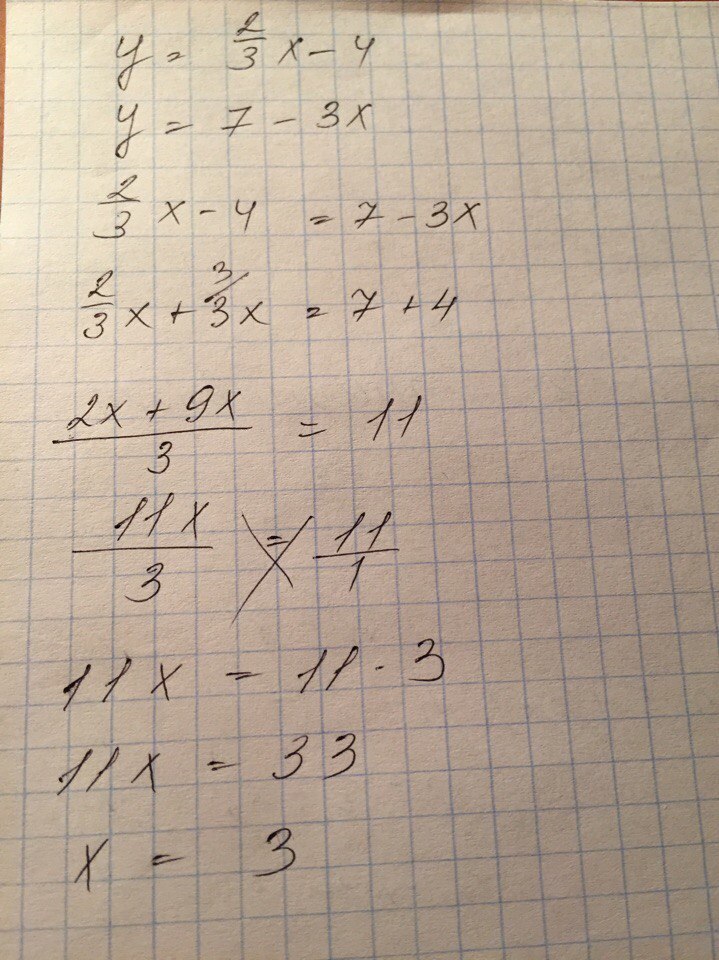 y = 2/3 x - 4
y = 7 - 3x
2/3 x - 4 = 7 - 3x
2/3 x + 3/ 3x = 7 + 4
2x + 9x / 3 = 11
11x / 3 = 11 / 1
11x = 11 · 3
11x = 33
x = 3